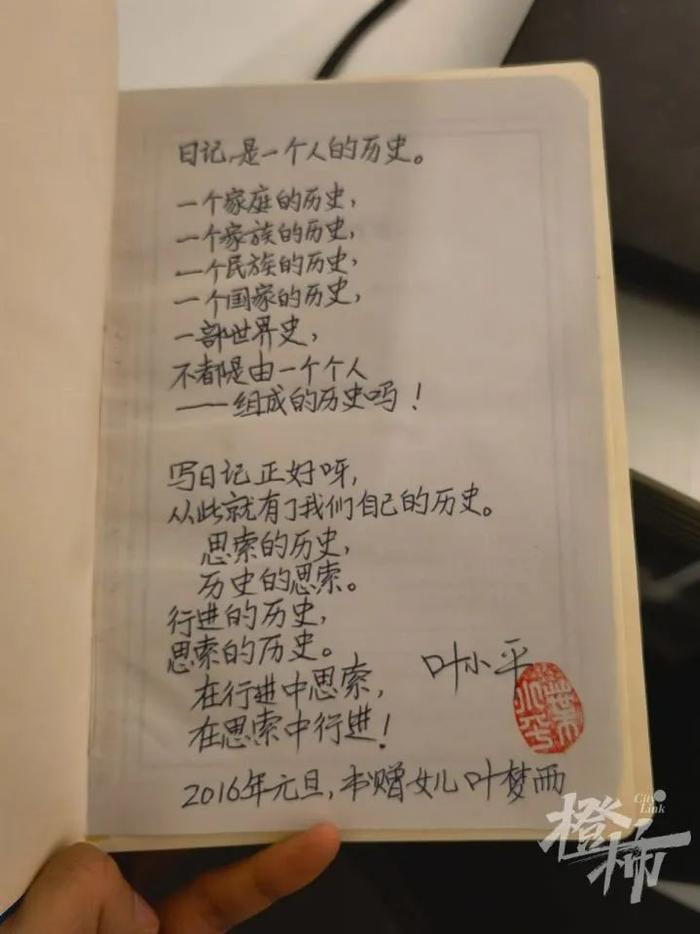 日记，是一个人的历史。
一个家庭的历史，
一个家族的历史，
一个民族的历史，
一个国家的历史，
一部世界史，
不都是由一个个人
——组成的历史吗！
写日记正好呀，
从此就有了我们自己的历史。
思索的历史，
历史的思索。
行进的历史，
思索的历史。
在行进中思索，
在思索中行进！
叶小平
2016年元旦，书赠女儿叶梦西
City Link
橙柿